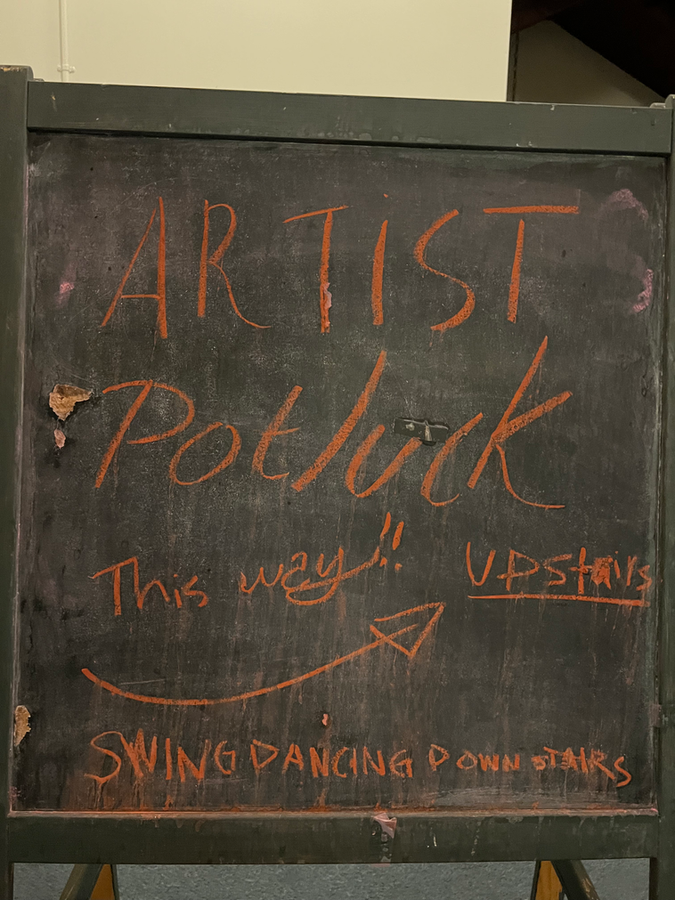 ARTiST
Potluck
This way!! UPStairs
SWING DANCING DOWN STAIRS